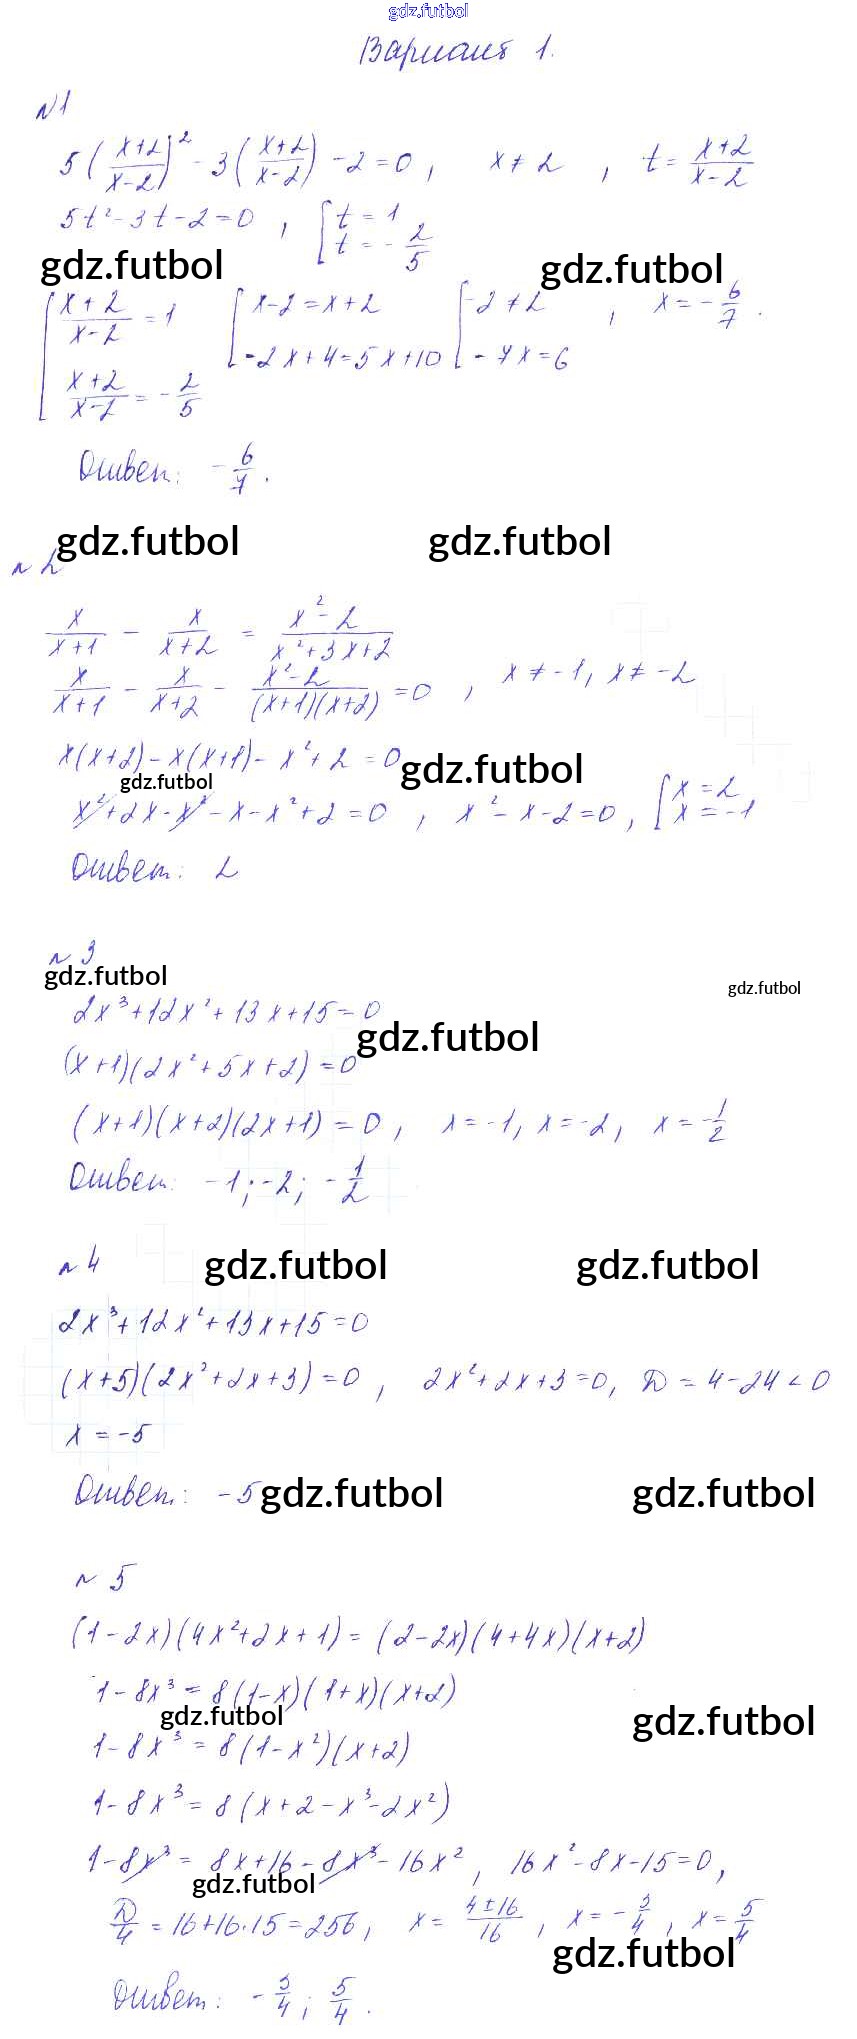 gdz.futbol
Вариант 1.
№1
5((x+2)/(x-2))² - 3((x+2)/(x-2)) - 2 = 0, x ≠ 2, t = (x+2)/(x-2)
5t² - 3t - 2 = 0, [t = 1 t = -2/5
gdz.futbol gdz.futbol
[(x+2)/(x-2) = 1 [x-2 = x+2 [-2 ≠ 2, x = -6/7.
(x+2)/(x-2) = -2/5 -2x+4 = 5x+10 -7x = 6
Ответ: -6/7.
gdz.futbol gdz.futbol
№2
x/(x+1) - x/(x+2) = (x²-2)/(x²+3x+2)
x/(x+1) - x/(x+2) - (x²-2)/((x+1)(x+2)) = 0, x ≠ -1, x ≠ -2
x(x+2) - x(x+1) - x² + 2 = 0
gdz.futbol gdz.futbol
x² + 2x - x² - x - x² + 2 = 0, x² - x - 2 = 0, [x = 2 x = -1
Ответ: 2
№3
gdz.futbol gdz.futbol
2x³ + 12x² + 13x + 15 = 0
gdz.futbol
(x+1)(2x² + 5x + 2) = 0
(x+1)(x+2)(2x+1) = 0, x = -1, x = -2, x = -1/2
Ответ: -1; -2; -1/2
№4
gdz.futbol gdz.futbol
2x³ + 12x² + 13x + 15 = 0
(x+5)(2x² + 2x + 3) = 0, 2x² + 2x + 3 = 0, D = 4 - 24 < 0
x = -5
Ответ: -5
gdz.futbol gdz.futbol
№5
(1-2x)(4x²+2x+1) = (2-2x)(4+4x)(x+2)
1-8x³ = 8(1-x)(1+x)(x+2)
gdz.futbol gdz.futbol
1-8x³ = 8(1-x²)(x+2)
1-8x³ = 8(x+2-x³-2x²)
1-8x³ = 8x+16-8x³-16x², 16x²-8x-15=0,
gdz.futbol
D/4 = 16+16·15 = 256, x = (4±16)/16, x = -3/4, x = 5/4
gdz.futbol
Ответ: -3/4; 5/4.